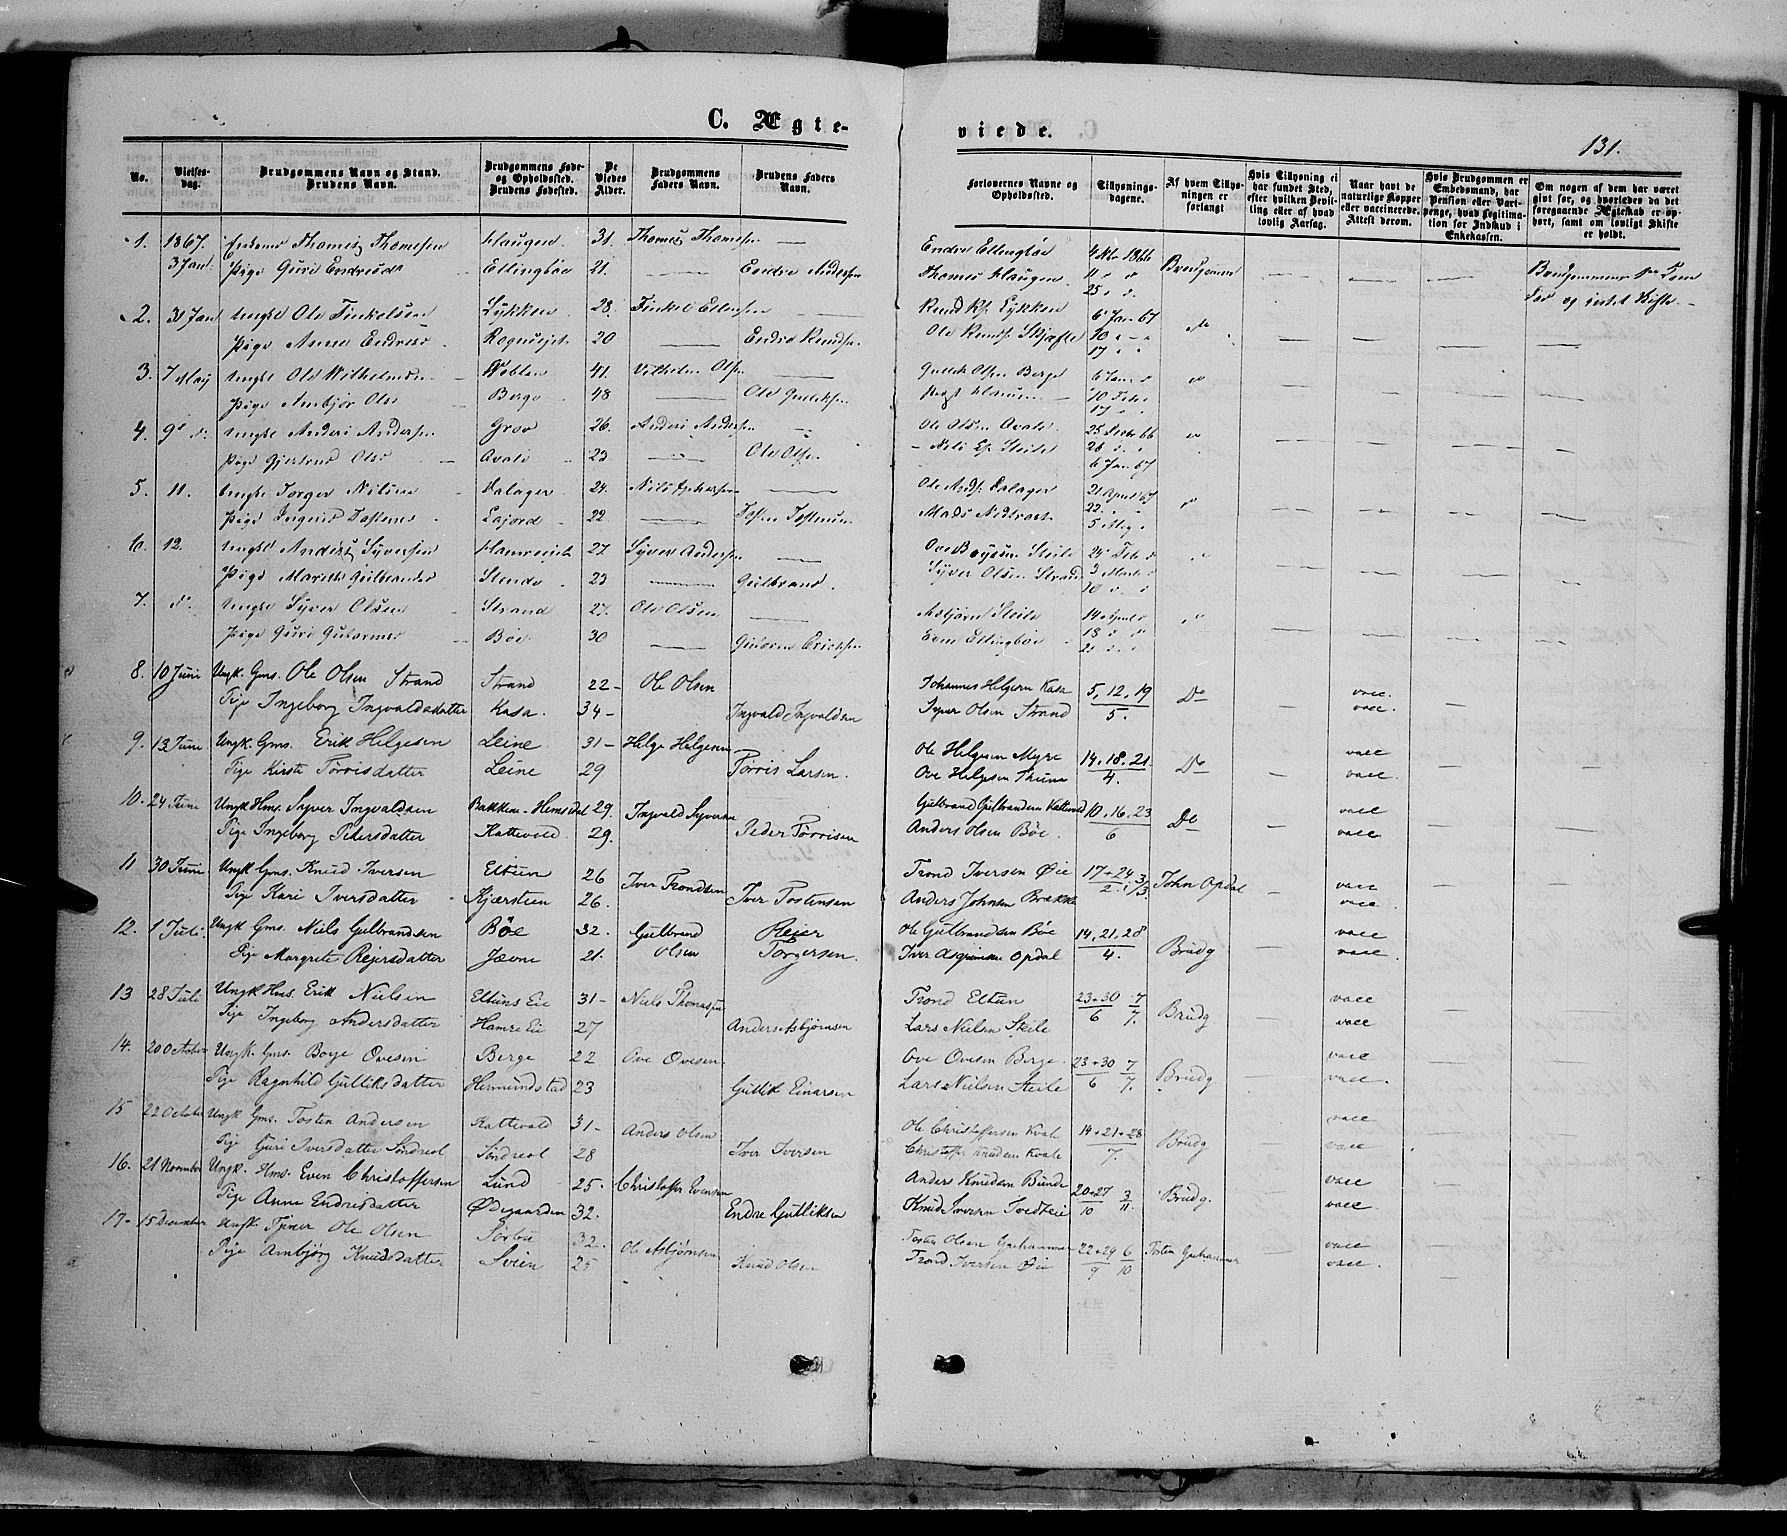 C. Ægte-
viede.
131.
No.
Vielses-
dag.
Brudgommens Navn og Stand.
Brudens Navn.
Brudgommens Føde-
og Opholdssted.
Brudens Fødested.
De
Viedes
Alder.
Brudgommens
Faders Navn.
Brudens Faders
Navn.
Forlovernes Navne og
Opholdssted.
Tillysnings-
dagene.
Af hvem Tillys-
ningen er
forlangt
Hvis Tillysning ei
har fundet Sted,
efter hvilken Bevil-
ling eller af hvad
lovlig Aarsag.
Naar havt de
naturlige Kopper
eller vaccinerede.
Attest derom.
Hvis Brudgommen er
Embedsmand, har
Pension eller Vart-
penge, hvad Legitima-
tion for Indskud i
Enkekassen.
Om nogen af dem har været
givt før, og hvorledes da det
foregaaende Ægteskab er op-
hørt, samt om lovligt Skifte
er holdt.
1. 1867. Enkem Thomas Thomesen Haugen 31. Thomes Thomesen — Endre Ellingbøe 4 Nbr 1866
3 Jan. Pige Guri Endresd Ellingbøe 21. — Endre Andersen Thomes Haugen 11 " " Brudgommen — — —
25 " "
2. 31 Jan Ungk Ole Finkelsen Lykken 28. Finkel — Knud Lykken 6 Jan 67 do
Pige Anne Endresd 20 — Endre Knudsen Ole Knudsen 10 " — "
17 " "
3. 7 May Ungk Ole Wilhelmsen 41 Vilhelm Olsen — Gullik Olsen Berge 6 Jan "
Pige Ambjør Olsd Berge 48 — Ole Gulliksen 10 Febr "
17 " "
4. 9 d. Ungk Anders Andersen Grov 26. Anders Andersen — Ole Olsen Avale 25 Decbr 66
Pige Gjertrud Olsd Avale 23 — Ole Olsen Nils Steile 26 " "
6 Jan 67
5. 11. Ungk Torger Nilsen Dalager 24. Nils — Ole Dalager 21 April 67
Pige Ingerid Tostensd 22 — Tosten Mads 22 " "
5 May "
6. 12. Ungk Anders Syversen 27. Syver Andersen — Ove Steile 24 Feb "
Pige Marith Gulbrandsd Stende 23 — Gulbrand Syver Olsen Strand 3 Marts "
10 " "
7. d. Ungk Syver Olsen Strand 27. Ole Olsen — Asbjørn Steile 14 April "
Pige Guri Guttormsd Bøe 30 — Guttorm Erichsen Even Ellingbøe 18 " "
21 " "
8. 10 Juni Ungk. Gms. Ole Olsen Strand Strand 22- Ole Olsen Johannes Helgesen Kasa 5, 12, 19 Do — vacc.
Pige Ingeborg Ingvaldsdatter Kasa. 34- Ingvald Ingvaldsen Syver Olsen Strand 5. vacc.
9. 13 Juni Ungk Gms. Erik Helgesen Leine 31- Helge Helgesen Ole Helgesen Myre 14, 18, 21 Do vacc
Pige Kirsti Torrisdatter Leine 29 Torris Larsen. Ove Helgesen Thune 4. — vacc.
10. 24 Juni Ungk Hms. Syver Ingvaldsen Bakken - Hemsedal 29. Ingvald Syversen Gulbrand Gulbrandsen Kattevold 10, 16, 23 Do — vacc
Pige Ingeborg Pedersdatter Kattevold 29. Peder Torrisen Anders Olsen Bøe. 6 vacc.
11 30 Juni Ungk Gms. Knud Iversen Eltun 26 Iver Trondsen Trond Iversen Øie 17+24 3/3 John Opdal — vacc
Pige Kari Iversdatter Kjærstein 26. Iver Tostensen Anders Johnsen Brække 2. vacc.
12. 1 Juli. Ungk Gms. Niels Gulbrandsen Bøe 32. Gulbrand Reier Ole Gulbrandsen Bøe 14, 21, 28 Brudg — vacc
Pige Margrete Reiersdatter Jævne 21. Olsen Torgersen. Iver Asgrimsen Opdal 4. vacc.
13 28 Juli Ungk Hms. Erik Nielsen Eltuns Eie 31- Niels Thomasen Trond Eltun 23+30 7 Brudg — vacc
Pige Ingeborg Andersdatter Hamre Eie 27 Anders Asbjørnsen Lars Nielsen Steile 6 7. vacc
14. 20 October Ungk. Gms. Boye Ovesen Berge 22 Ove Ovesen. Ove Ovesen Berge. 23+30 7 Brudg. — vacc
Pige Ragnhild Gulliksdatter Hermundstad 23 Gullik Einarsen Lars Nielsen Steile 6 7. vacc.
15 22 October Ungk. Gms. Tosten Andersen Kattevold 31- Anders Olsen Ole Christoffersen Kvale 14+21+28 Brudg — vacc
Pige Guri Iversdatter Söndreol Söndreol 28 Iver Iversen Christoffer Knudsen Kvale 7. vacc
16. 21 November Ungk. Hms. Even Christoffersen Lund 25. Christoffer Evensen Anders Knudsen Bunde 20+27 3 Brudg. vacc
Pige Anne Endresdatter Ødegaarden 32. Endre Gulliksen Knud Iversen Tvedteie 10 11. vacc.
17. 15 December Ungk. Gjver Ole Olsen Sørbø 32. Ole Asbjørnsen Tosten Olsen Gjuhammer 22+29 6 Tosten Gjuhammer vacc
Pige Ambjørg Knudsdatter Svien 25 Knud Olsen Trond Iversen Øie 9 10 vacc.